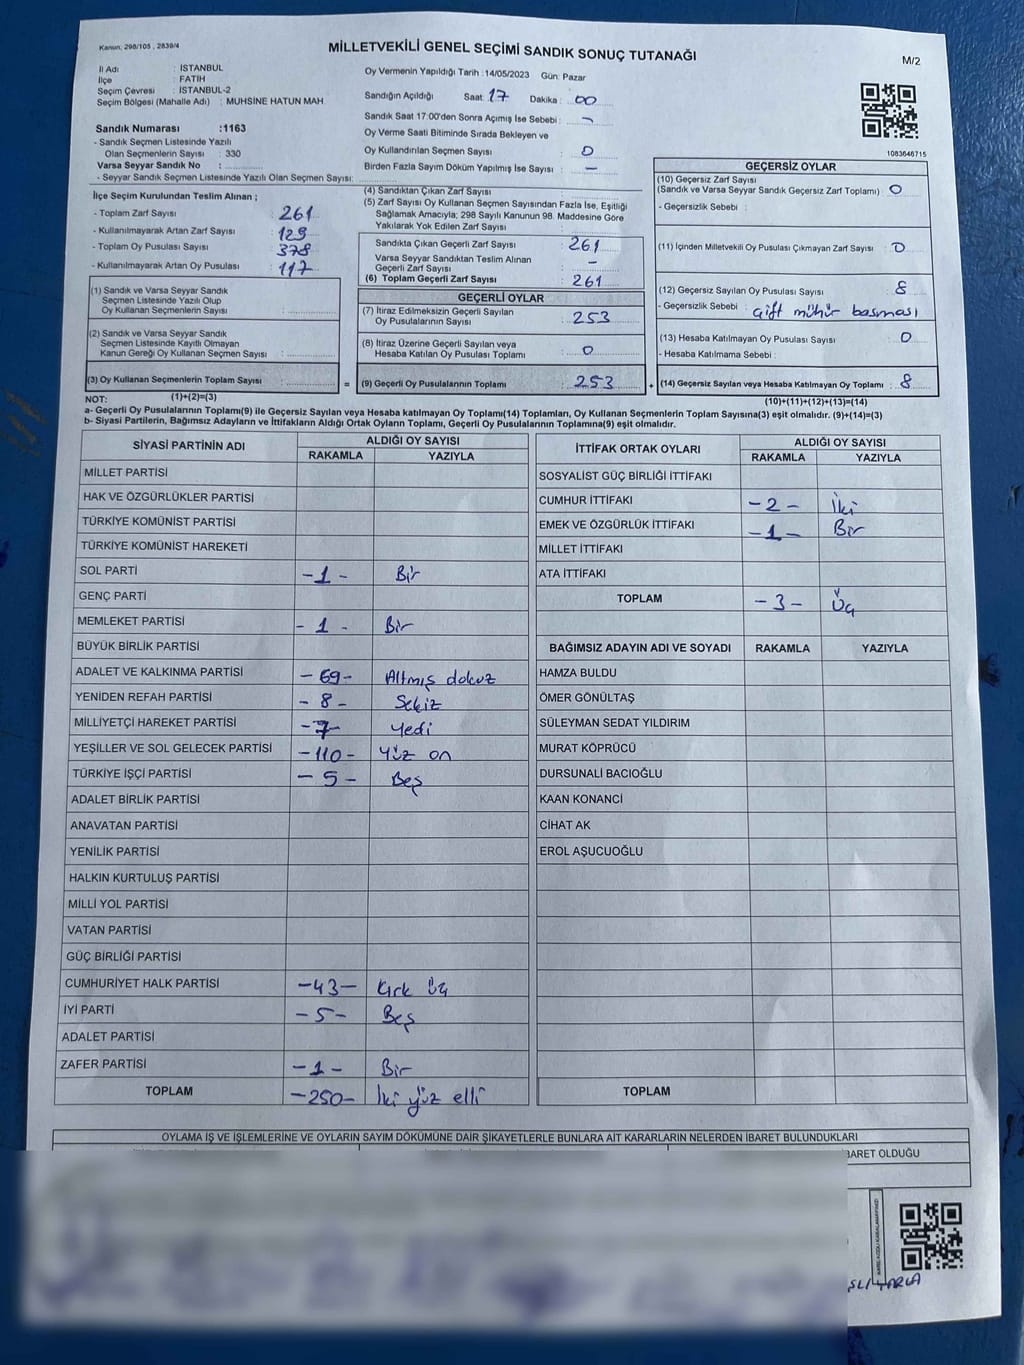 Kanun, 298/105 , 2839/4
MİLLETVEKİLİ GENEL SEÇİMİ SANDIK SONUÇ TUTANAĞI
M/2
İl Adı : İSTANBUL
İlçe : FATİH
Seçim Çevresi : İSTANBUL-2
Seçim Bölgesi (Mahalle Adı) : MUHSİNE HATUN MAH.
Sandık Numarası :1163
- Sandık Seçmen Listesinde Yazılı
Olan Seçmenlerin Sayısı : 330
Varsa Seyyar Sandık No :
- Seyyar Sandık Seçmen Listesinde Yazılı Olan Seçmen Sayısı:
Oy Vermenin Yapıldığı Tarih :14/05/2023 Gün: Pazar
Sandığın Açıldığı Saat: 17 Dakika : 00
Sandık Saat 17:00'den Sonra Açımış İse Sebebi : -
Oy Verme Saati Bitiminde Sırada Bekleyen ve
Oy Kullandırılan Seçmen Sayısı : 0
Birden Fazla Sayım Döküm Yapılmış İse Sayısı : -
1083646715
İlçe Seçim Kurulundan Teslim Alınan ;
- Toplam Zarf Sayısı : 261
- Kullanılmayarak Artan Zarf Sayısı : 129
- Toplam Oy Pusulası Sayısı : 378
- Kullanılmayarak Artan Oy Pusulası : 117
(1) Sandık ve Varsa Seyyar Sandık
Seçmen Listesinde Yazılı Olup
Oy Kullanan Seçmenlerin Sayısı :
(2) Sandık ve Varsa Seyyar Sandık
Seçmen Listesinde Kayıtlı Olmayan
Kanun Gereği Oy Kullanan Seçmen Sayısı :
(3) Oy Kullanan Seçmenlerin Toplam Sayısı :
(1)+(2)=(3)
(4) Sandıktan Çıkan Zarf Sayısı :
(5) Zarf Sayısı Oy Kullanan Seçmen Sayısından Fazla İse, Eşitliği
Sağlamak Amacıyla; 298 Sayılı Kanunun 98. Maddesine Göre
Yakılarak Yok Edilen Zarf Sayısı :
Sandıkta Çıkan Geçerli Zarf Sayısı : 261
Varsa Seyyar Sandıktan Teslim Alınan
Geçerli Zarf Sayısı : -
(6) Toplam Geçerli Zarf Sayısı : 261
GEÇERLİ OYLAR
(7) İtiraz Edilmeksizin Geçerli Sayılan
Oy Pusulalarının Sayısı : 253
(8) İtiraz Üzerine Geçerli Sayılan veya
Hesaba Katılan Oy Pusulası Toplamı : 0
= (9) Geçerli Oy Pusulalarının Toplamı : 253 +
GEÇERSİZ OYLAR
(10) Geçersiz Zarf Sayısı
(Sandık ve Varsa Seyyar Sandık Geçersiz Zarf Toplamı) : 0
- Geçersizlik Sebebi :
(11) İçinden Milletvekili Oy Pusulası Çıkmayan Zarf Sayısı : 0
(12) Geçersiz Sayılan Oy Pusulası Sayısı : 8
- Geçersizlik Sebebi : Çift mühür basması
(13) Hesaba Katılmayan Oy Pusulası Sayısı : 0
- Hesaba Katılmama Sebebi :
(14) Geçersiz Sayılan veya Hesaba Katılmayan Oy Toplamı : 8
(10)+(11)+(12)+(13)=(14)
NOT:
a- Geçerli Oy Pusulalarının Toplamı(9) ile Geçersiz Sayılan veya Hesaba katılmayan Oy Toplamı(14) Toplamları, Oy Kullanan Seçmenlerin Toplam Sayısına(3) eşit olmalıdır. (9)+(14)=(3)
b- Siyasi Partilerin, Bağımsız Adayların ve İttifakların Aldığı Ortak Oyların Toplamı, Geçerli Oy Pusulalarının Toplamına(9) eşit olmalıdır.
SİYASİ PARTİNİN ADI
ALDIĞI OY SAYISI
RAKAMLA YAZIYLA
MİLLET PARTİSİ
HAK VE ÖZGÜRLÜKLER PARTİSİ
TÜRKİYE KOMÜNİST PARTİSİ
TÜRKİYE KOMÜNİST HAREKETİ
SOL PARTİ -1- Bir
GENÇ PARTİ
MEMLEKET PARTİSİ -1- Bir
BÜYÜK BİRLİK PARTİSİ
ADALET VE KALKINMA PARTİSİ -69- Altmış dokuz
YENİDEN REFAH PARTİSİ -8- Sekiz
MİLLİYETÇİ HAREKET PARTİSİ -7- Yedi
YEŞİLLER VE SOL GELECEK PARTİSİ -110- Yüz on
TÜRKİYE İŞÇİ PARTİSİ -5- Beş
ADALET BİRLİK PARTİSİ
ANAVATAN PARTİSİ
YENİLİK PARTİSİ
HALKIN KURTULUŞ PARTİSİ
MİLLİ YOL PARTİSİ
VATAN PARTİSİ
GÜÇ BİRLİĞİ PARTİSİ
CUMHURİYET HALK PARTİSİ -43- Kırk üç
İYİ PARTİ -5- Beş
ADALET PARTİSİ
ZAFER PARTİSİ -1- Bir
TOPLAM -250- İki yüz elli
İTTİFAK ORTAK OYLARI
ALDIĞI OY SAYISI
RAKAMLA YAZIYLA
SOSYALİST GÜÇ BİRLİĞİ İTTİFAKI
CUMHUR İTTİFAKI -2- İki
EMEK VE ÖZGÜRLÜK İTTİFAKI -1- Bir
MİLLET İTTİFAKI
ATA İTTİFAKI
TOPLAM -3- Üç
BAĞIMSIZ ADAYIN ADI VE SOYADI RAKAMLA YAZIYLA
HAMZA BULDU
ÖMER GÖNÜLTAŞ
SÜLEYMAN SEDAT YILDIRIM
MURAT KÖPRÜCÜ
DURSUNALİ BACIOĞLU
KAAN KONANCİ
CİHAT AK
EROL AŞUCUOĞLU
TOPLAM
OYLAMA İŞ VE İŞLEMLERİNE VE OYLARIN SAYIM DÖKÜMÜNE DAİR ŞİKAYETLERLE BUNLARA AİT KARARLARIN NELERDEN İBARET BULUNDUKLARI
BARET OLDUĞU